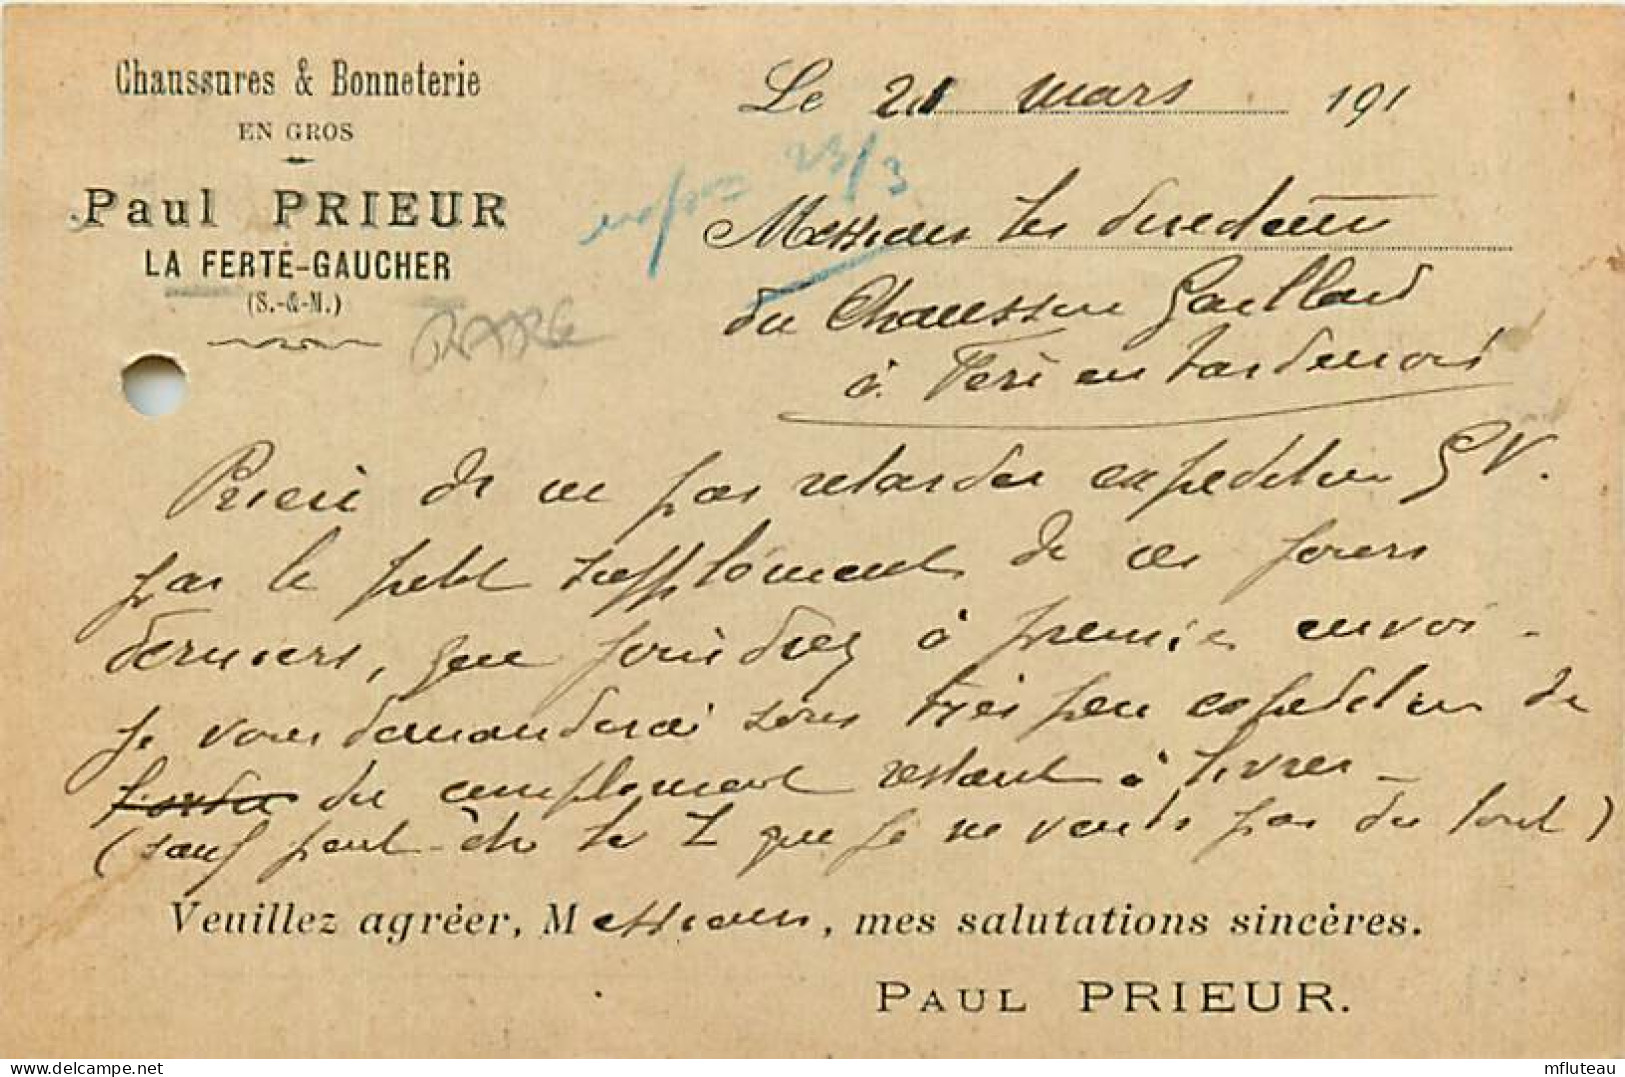 Chaussures & Bonneterie
EN GROS
Paul PRIEUR
LA FERTÉ-GAUCHER
(S.-&-M.)
RARE
Le 21 mars 191
23/3
Messieurs les directeurs
du Chausson Gaillard
à Fère en Tardenois
Prière de ne pas retarder expedition G V.
par le petit supplément de ces jours
derniers, que joindrez à premier envoi -
Je vous demanderai sous très peu expedition de
du complement restant à livrer -
(sauf peut-être le Z que je ne veux pas du tout)
Veuillez agréer, Messieurs, mes salutations sincères.
PAUL PRIEUR.
mfluteau